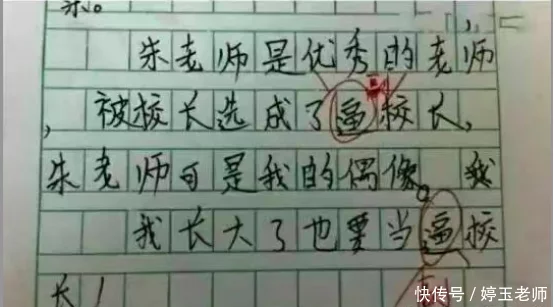 朱老师是优秀的老师
副
，被校长选成了逼校长，
朱老师可是我的偶像。我
我长大了也要当逼校
长！
快传号/婷玉老师